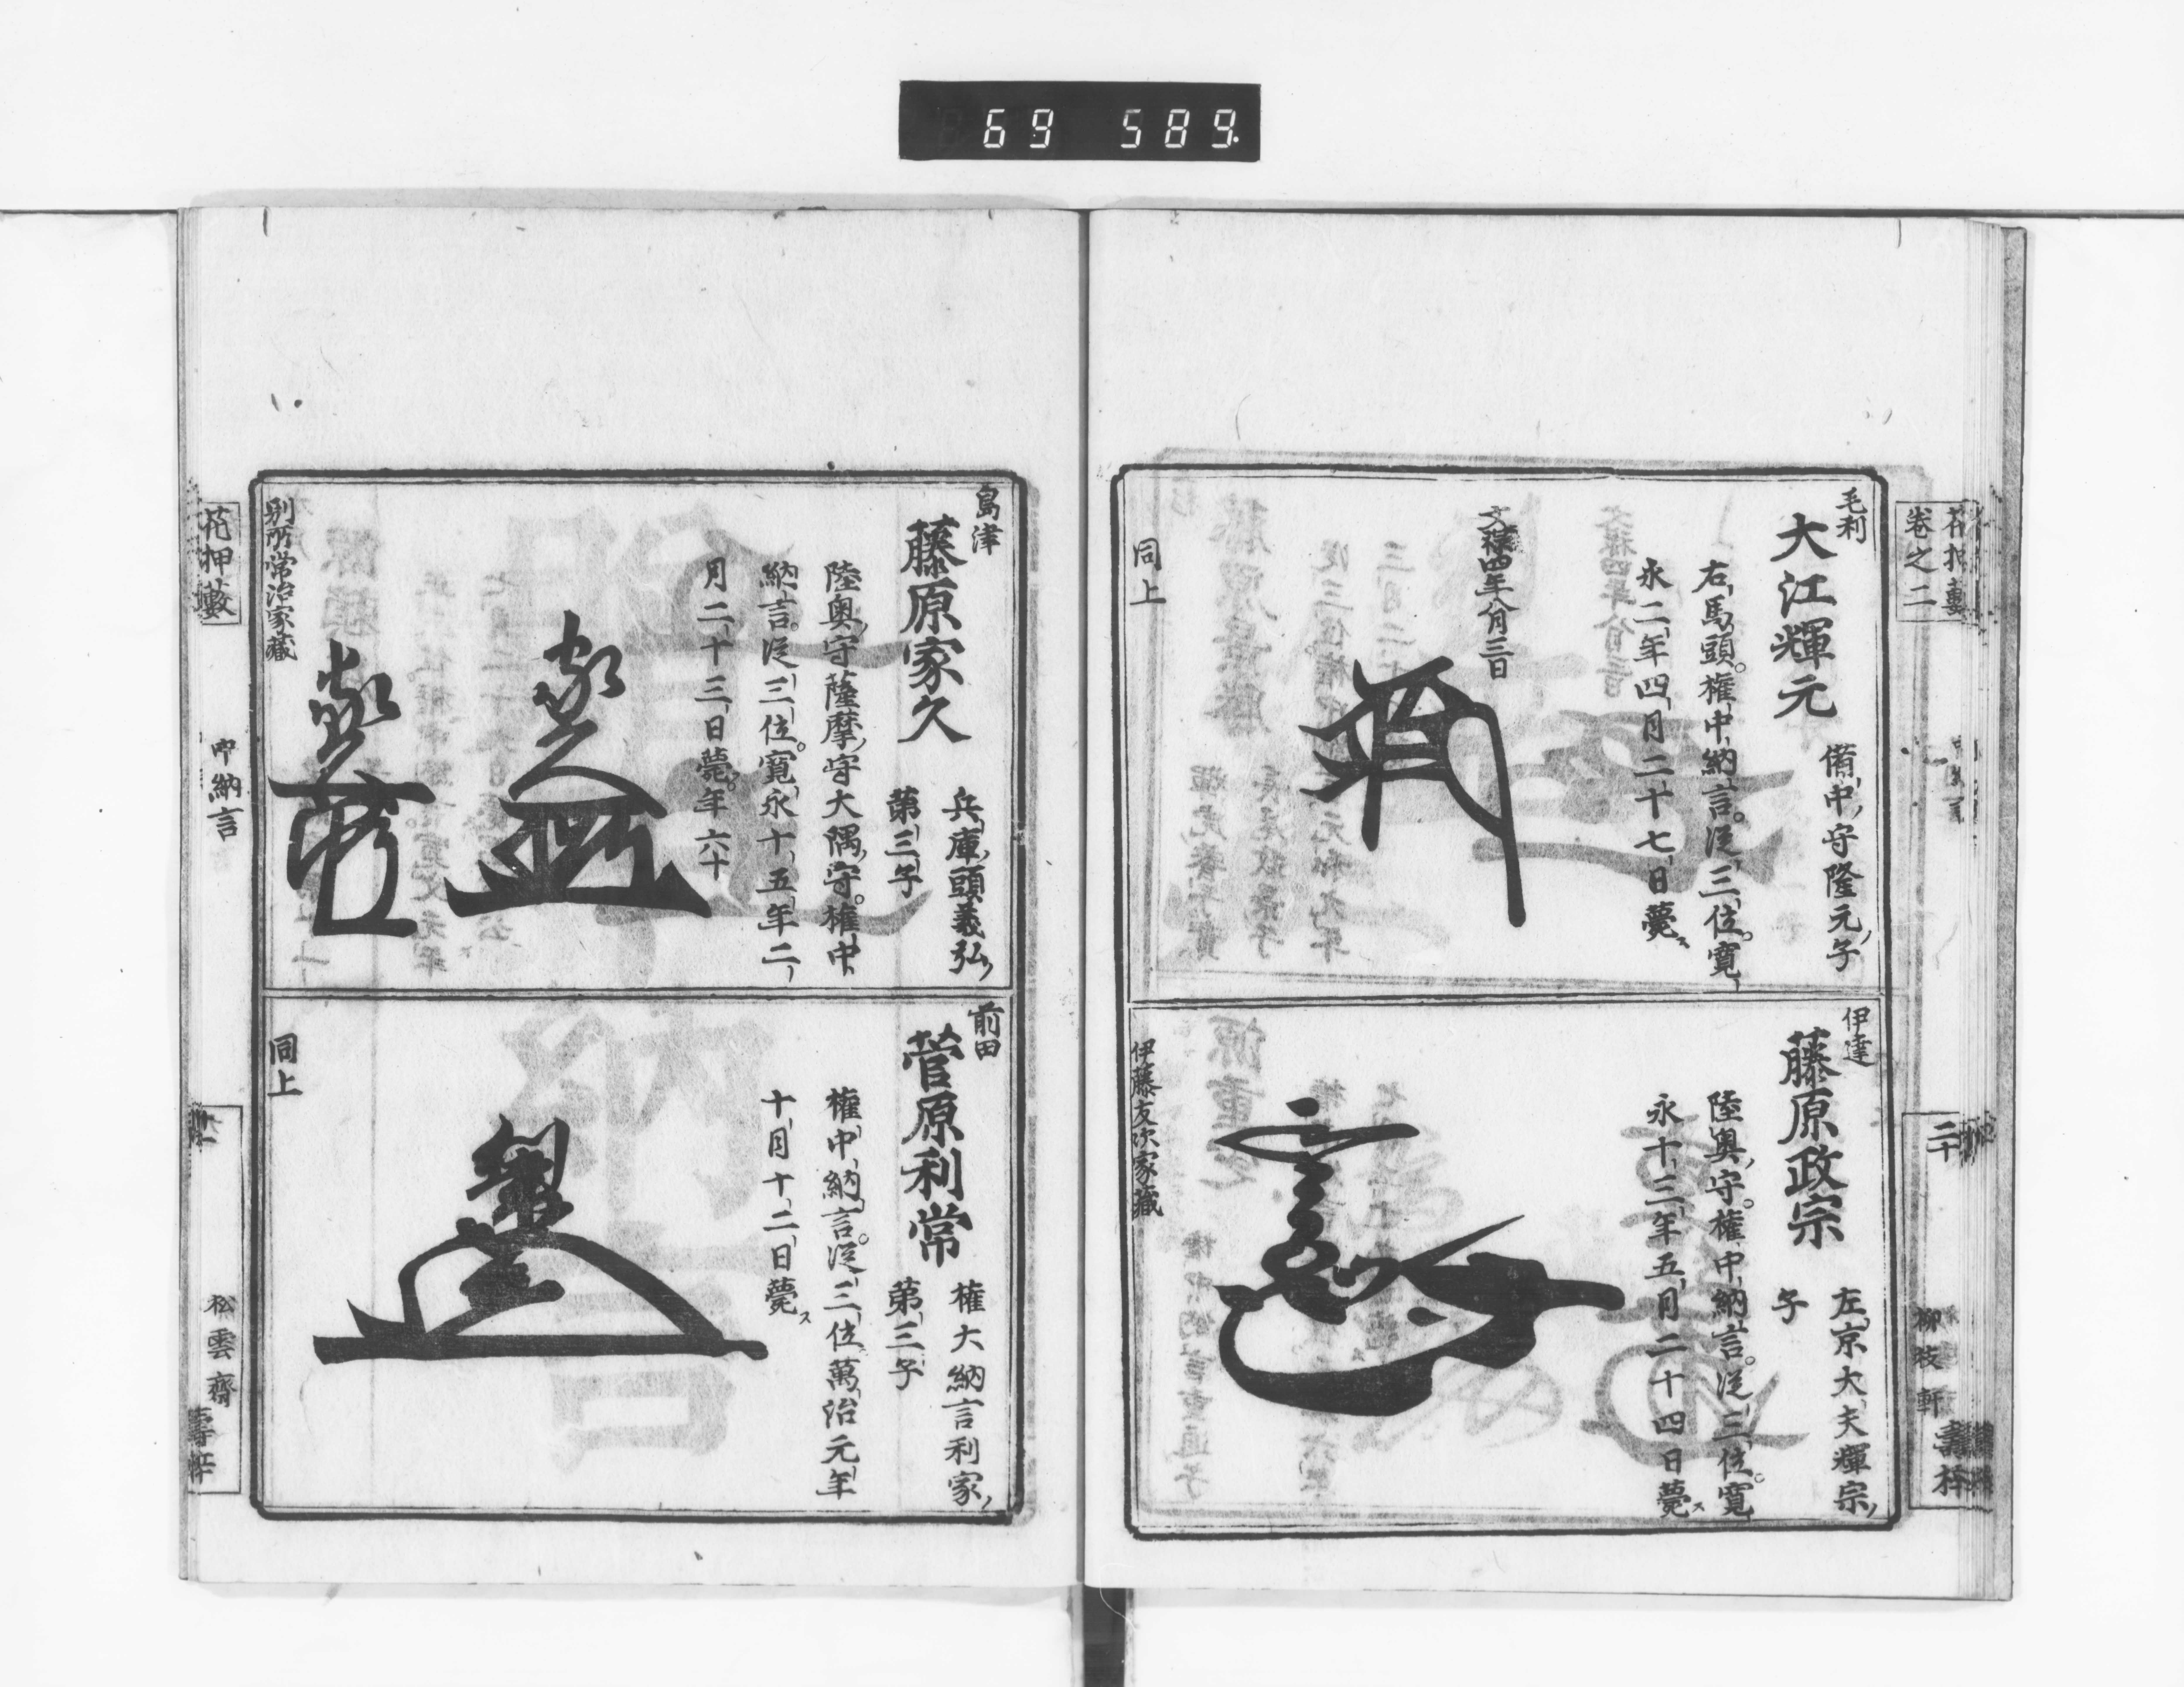 69 589.
花押藪
卷之二
二十
柳枝軒
毛利
大江輝元
備中守隆元子
右馬頭。權中納言。從三位。寬
永二年四月二十七日薨ス
文祿四年八月三日
同上
伊達
藤原政宗
左京大夫輝宗
子
陸奥守。權中納言。從三位。寬
永十三年五月二十四日薨ス
伊藤友次家藏
島津
藤原家久
兵庫頭義弘
第三子
陸奥守薩摩守大隅守。權中
納言。從三位。寬永十五年二
月二十三日薨。年六十
別所常治家藏
前田
菅原利常
權大納言利家
第三子
權中納言。從三位萬治元年
十月十二日薨ス
同上
花押藪
中納言
松雲齋